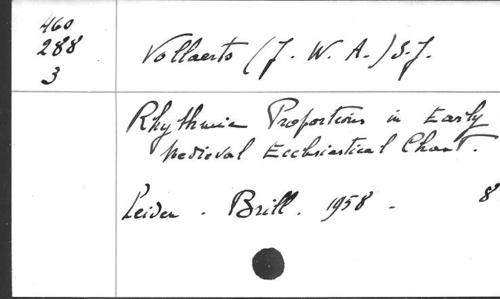 460
288
3
Vollaerts (J. W. A.) S.J.
Rhythmic Proportions in Early
Medieval Ecclesiastical Chant.
Leiden. Brill. 1958 - 8